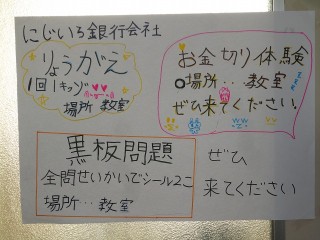 にじいろ銀行会社
りょうがえ
1回1キッヅ
場所 教室
お金切り体験
場所‥教室
ぜひ来てください。
黒板問題
全問せいかいでシール2こ
場所‥教室
ぜひ
来てください